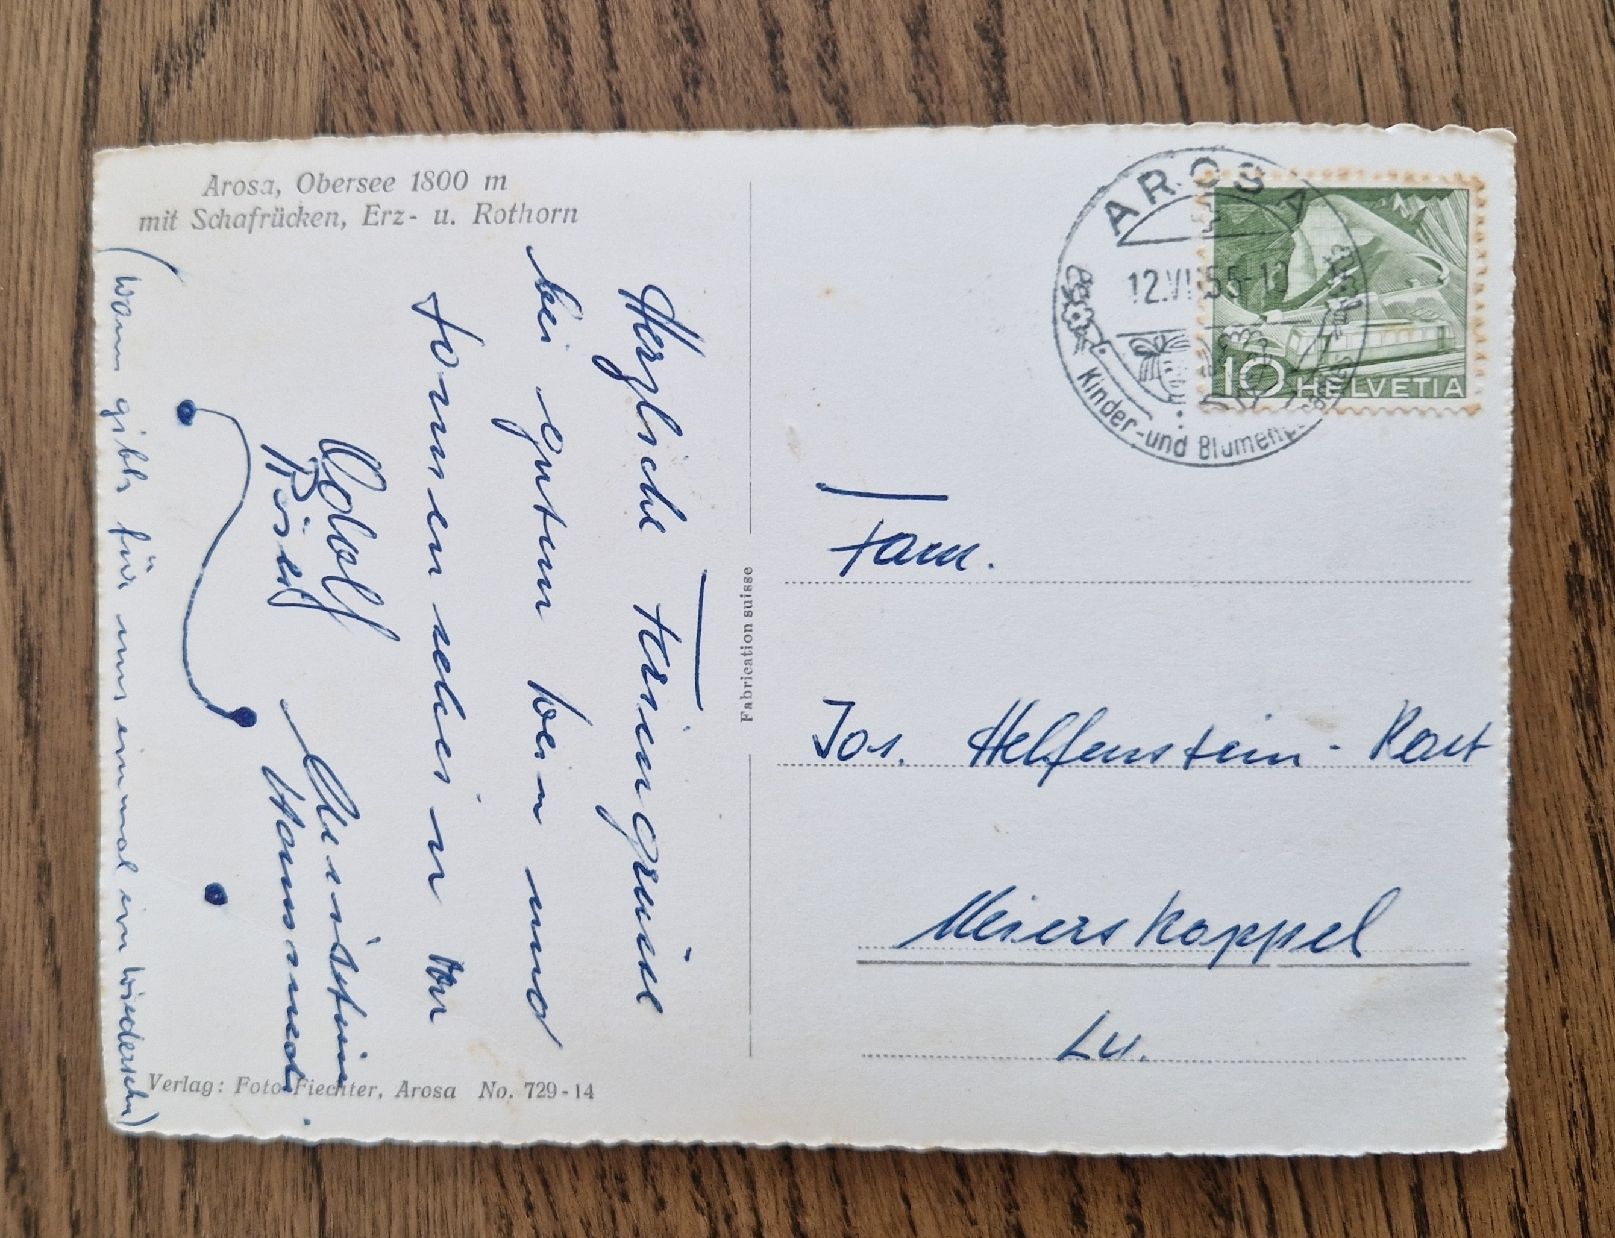 Arosa, Obersee 1800 m
mit Schafrücken, Erz- u. Rothorn
Herzliche Feriengrüsse
bei gutem Wein und
Sonnenschein
Adolf
Rösli
Christine
(Wann gibts für uns einmal ein Wiedersehn)
Verlag: Foto Fiechter, Arosa No. 729-14
Fabrication suisse
AROSA
Kinder- und
10 HELVETIA
Fam.
Jos. Helfenstein-
Meierskappel
Lu.